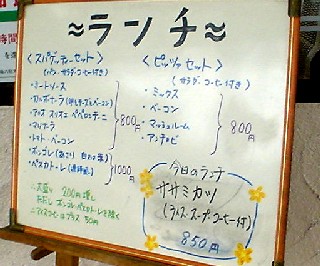 ≈ランチ≈
〈スパゲッティーセット〉
(パン・サラダ・コーヒー付き)
・ミートソース
・カルボナーラ
・アリオ オリオ ペペロンチーニ
・マリナーラ
・トマト・ベーコン
800円
・ボンゴレ(あさり 白ワイン)
・ペスカトーレ
1000円
☆大盛り 200円増し
☆アイスコーヒーはプラス 50円
〈ピッツァセット〉
(サラダ・コーヒー付き)
・ミックス
・ベーコン
・マッシュルーム
・アンチョビ
800円
今日のランチ
ササミカツ
(ライス・スープ・コーヒー付)
850円
時間